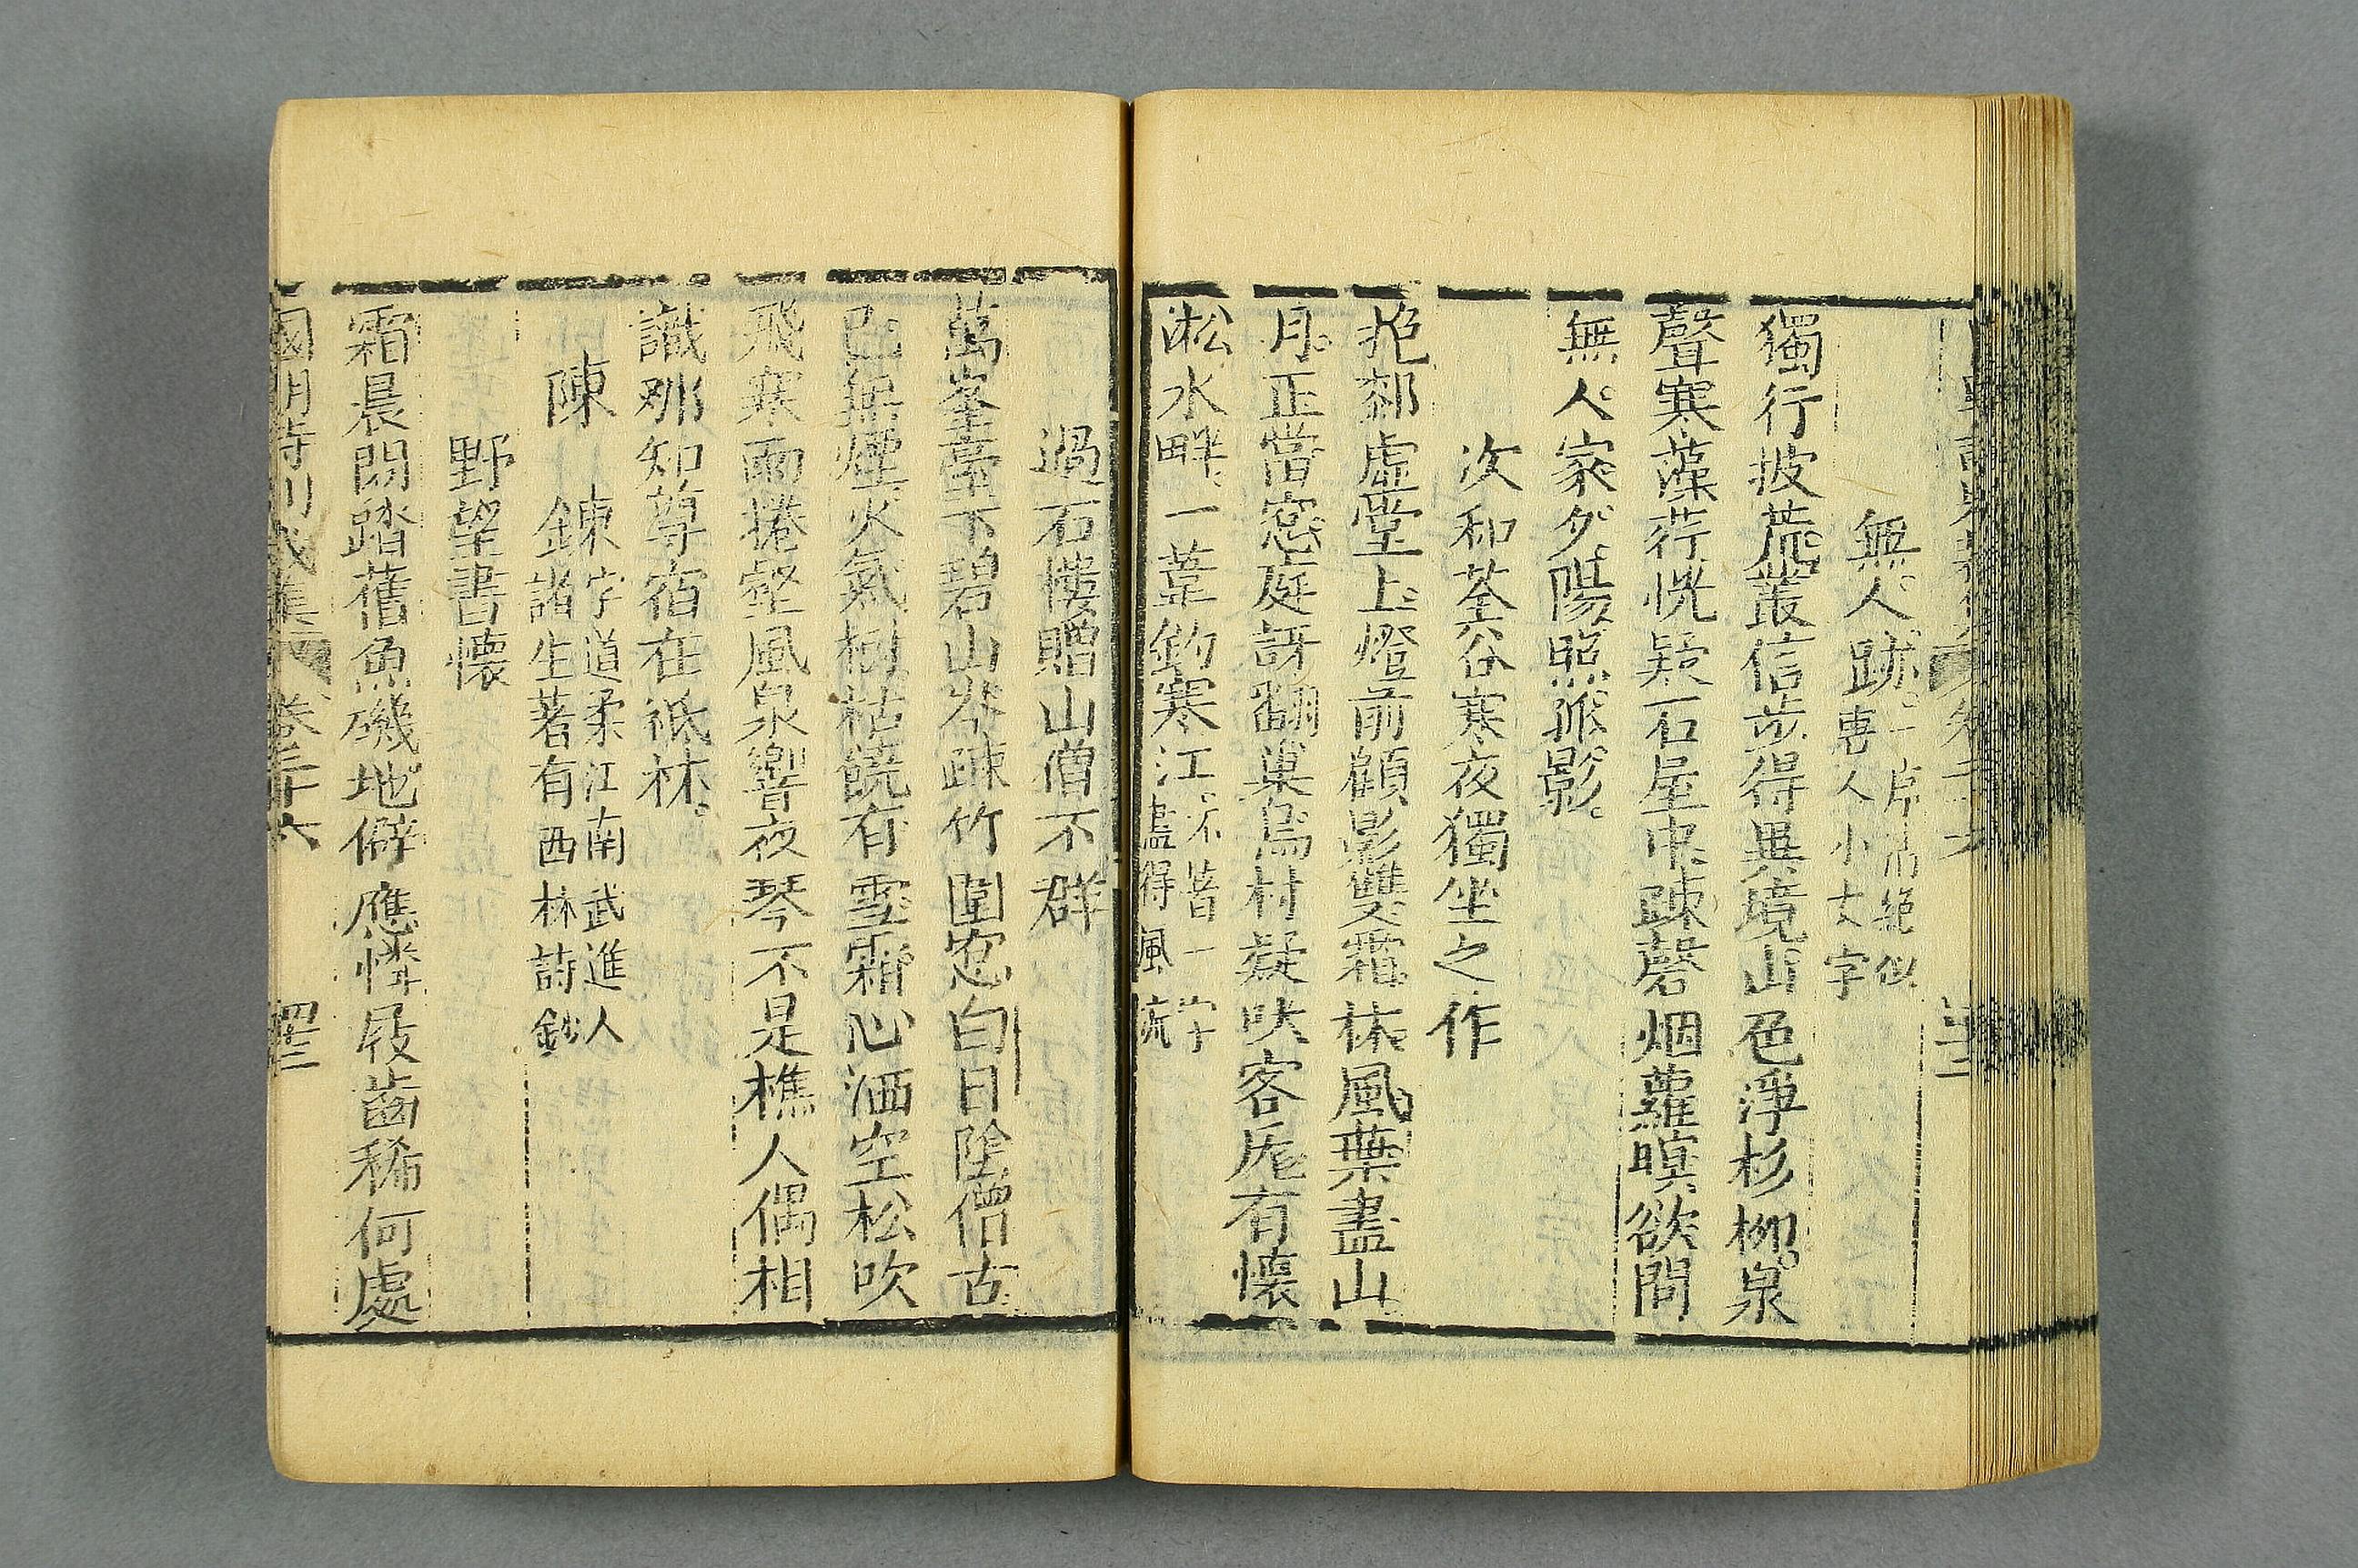 無人跡一片清絕似
專人小大字
獨行披荒叢信步得異境山色淨杉柳泉
聲寒藻荇恍疑石屋中疎磬烟蘿暝欲問
無人家夕陽照孤影
次和荃谷寒夜獨坐之作
抱郗虛堂上燈前顧影雙霜林風葉盡山
月正當窓庭訝翻巢烏村疑吠客尨有懷
淞水畔一葦釣寒江不著一字
盡得風流
過石樓贈山僧不群
萬峯臺下碧山岑疎竹圍窓白日陰僧古
已無煙火氣樹枯饒有雪霜心洒空松吹
飛寒雨捲壑風泉響夜琴不是樵人偶相
識那知尊宿在祇林
陳鍊字道柔江南武進人
諸生著有西林詩鈔
野望書懷
霜晨閒踏舊魚磯地僻應憐屐齒稀何處
國朝詩別裁集 卷三十六 四三